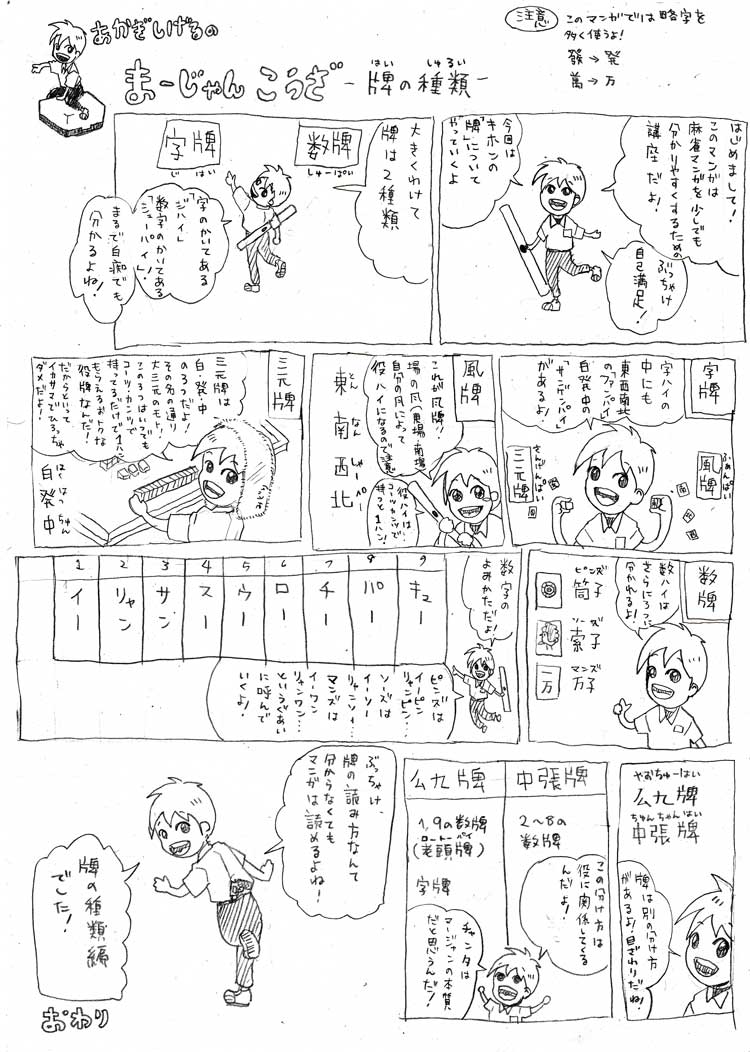 あかぎしげるの
まーじゃんこうざ
-牌の種類-
はい
しゅるい
注意
このマンガでは略字を
多く使うよ!
發→発
萬→万
はじめまして!
このマンガは
麻雀マンガを少しでも
分かりやすくするための
講座だよ!
ぶっちゃけ
自己満足!
今回は
キホンの
「牌」について
やっていくよ
大きくわけて
牌は2種類
数牌
しゅーぱい
字牌
じはい
「字のかいてある
ジハイ」
「数字のかいてある
シューパイ」!
まるで白痴でも
分かるよね!
字牌
字ハイの
中にも
東西南北
の「ファンパイ」
白発中の
「サンゲンパイ」
があるよ!
風牌
ふぁんぱい
三元牌
さんげんぱい
風牌
これが風牌!!
場の風(東場・南場)
自分の風によって
役ハイになるので注意
役ハイは
コーツ・カンツで
持つと1ハン!
東
南
西
北
とん
なん
しゃー
ぺー
三元牌
三元牌は
白・発・中
の3つだよ!
その名の通り
大三元のモト!
この3つはいつでも
コーツ・カンツで
持ってるだけで1ハン
もらえるおトクな
役牌なんだ!
だからといって
イカサマでひろっちゃ
ダメだよ!
白
発
中
はく
はつ
ちゅん
数牌
数ハイは
さらに3つに
分かれるよ!
筒子
ピンズ
索子
ソーズ
万子
マンズ
一万
数字の
よみかただよ!
1 2 3 4 5 6 7 8 9
イー
リャン
サン
スー
ウー
ロー
チー
パー
キュー
ピンズは
イーピン
リャンピン…
ソーズは
イーソー
リャンソー…
マンズは
イーワン
リャンワン…
というぐあい
に呼んで
いくよ!
やおちゅーはい
么九牌
ちゅんちゃんはい
中張牌
牌は別の分け方
があるよ!目ざわりだね!
中張牌
2~8の
数牌
么九牌
1,9の数牌
ロートーパイ
(老頭牌)
字牌
この分け方は
役に関係してくる
んだよ!
チャンタは
マージャンの本質
だと思うんだ!
ぶっちゃけ、
牌の読み方なんて
分からなくても
マンガは読めるよね!
牌の種類編
でした!
おわり